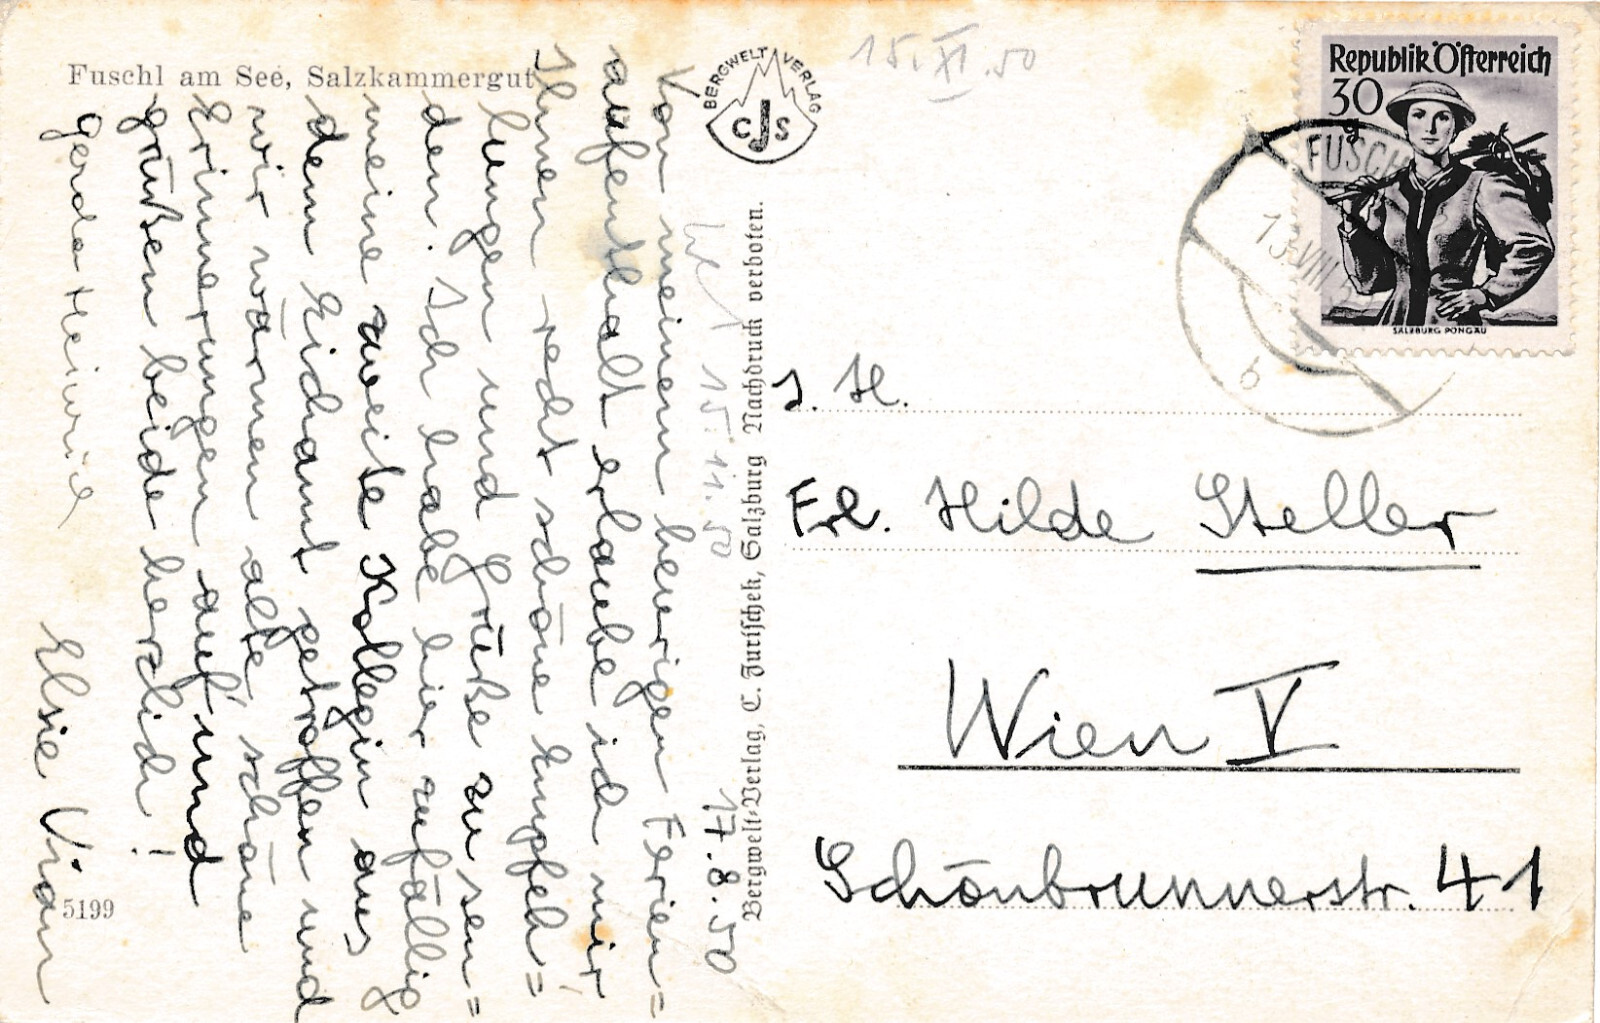 Fuschl am See, Salzkammergut
BERGWELT VERLAG
CJS
15. XI. 50
Republik Österreich
30
SALZBURG PONGAU
FUSCH
13.VIII
b
17.8.50
Von meinem heurigen Ferien=
aufenthalt erlaube ich mir
Ihnen recht schöne Empfeh=
lungen und Grüße zu sen=
den. Ich habe hier zufällig
meine zweite Kollegin aus
dem Eichamt getroffen und
wir wärmen alte, schöne
Erinnerungen auf und
grüßen beide herzlich!
Gerda
Elsie
15.11.50
Bergwelt=Verlag, C. Jurischek, Salzburg Nachdruck verboten.
S. H.
Frl. Hilde Steller
Wien V
Schönbrunnerstr. 41
5199